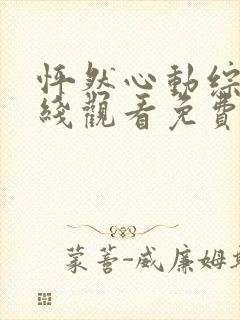 怦然心動綜
綫觀看免費
蒙蒈-威廉姆斯